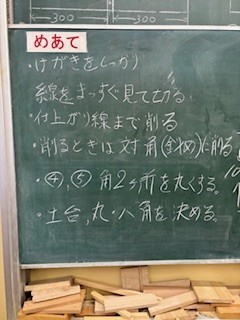 300 300
めあて
・けがきをしっかり
線をまっすぐ見て切る
・仕上がり線まで削る
・削るときは対角(斜め)に削る
・④,⑤ 角2ヶ所を丸くする。
・土台,丸・八角を決める。